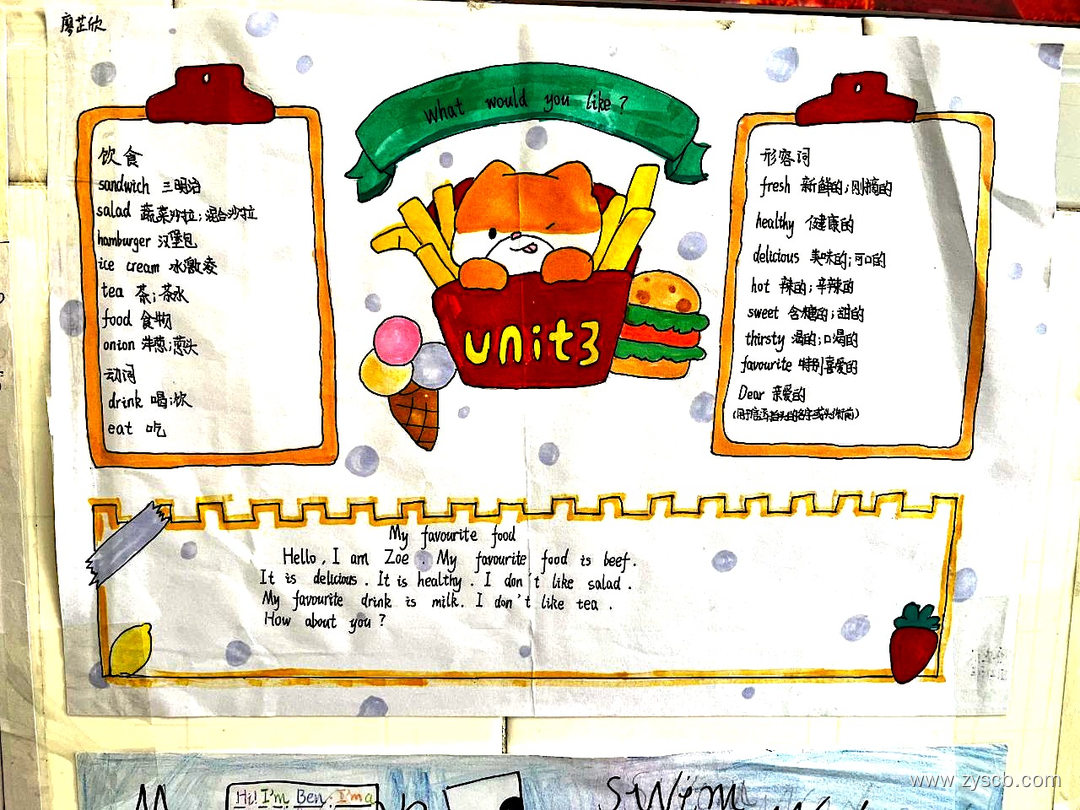 廖芷欣
What would you like?
饮食
sandwich 三明治
salad 蔬菜沙拉;混合沙拉
hamburger 汉堡包
ice cream 冰激凌
tea 茶;茶水
food 食物
onion 洋葱;葱头
动词
drink 喝;饮
eat 吃
unit3
形容词
fresh 新鲜的;刚摘的
healthy 健康的
delicious 美味的;可口的
hot 辣的;辛辣的
sweet 含糖的;甜的
thirsty 渴的;口渴的
favourite 特别喜爱的
Dear 亲爱的
My favourite food
Hello, I am Zoe. My favourite food is beef.
It is delicious. It is healthy. I don't like salad.
My favourite drink is milk. I don't like tea.
How about you?
Hi! I'm Ben. I'm a
Swim
www.zyscb.com